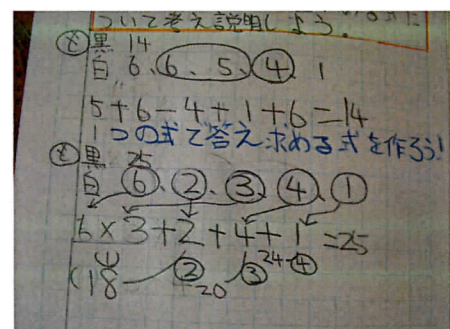 ついて考え説明しよう。
と 黒 14
白 6、6、5、4、1
5+6-4+1+6=14
1つの式で答え求める式を作ろう!
と 黒 25
白 6、2、3、4、1
6×3+2+4+1=25
18 ② 20 ③ 24 ④